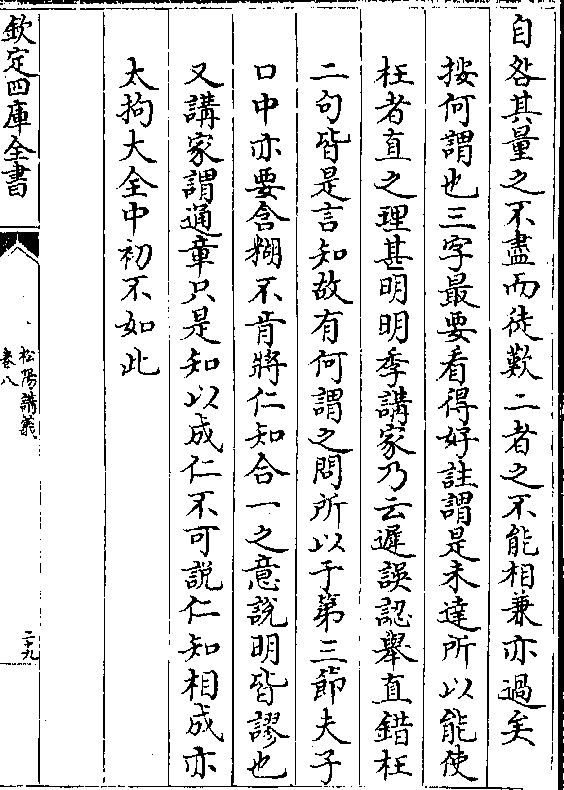 自咎其量之不盡而徒歎二者之不能相兼亦過矣
按何謂也三字最要看得好註謂是未達所以能使
枉者直之理甚明明季講家乃云遲誤認舉直錯枉
二句皆是言知故有何謂之問所以于第三節夫子
口中亦要含糊不肯將仁知合一之意說明皆謬也
又講家謂通章只是知以成仁不可説仁知相成亦
太拘大全中初不如此
欽定四庫全書
松陽講義
卷八
二十九